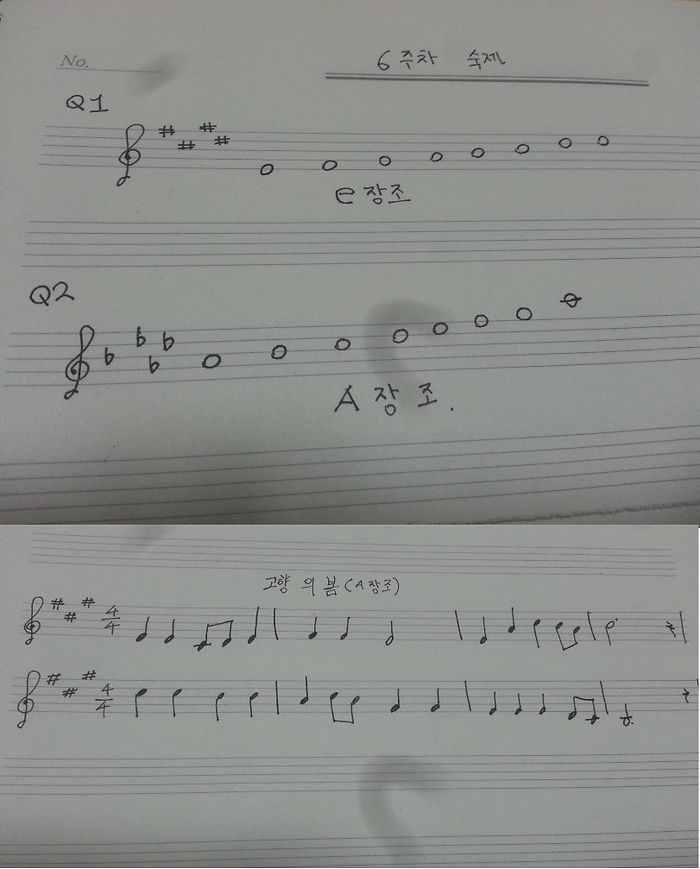 No.
6주차 숙제
Q1
e장조
Q2
A 장조.
고향의 봄 (A장조)
4/4
4/4